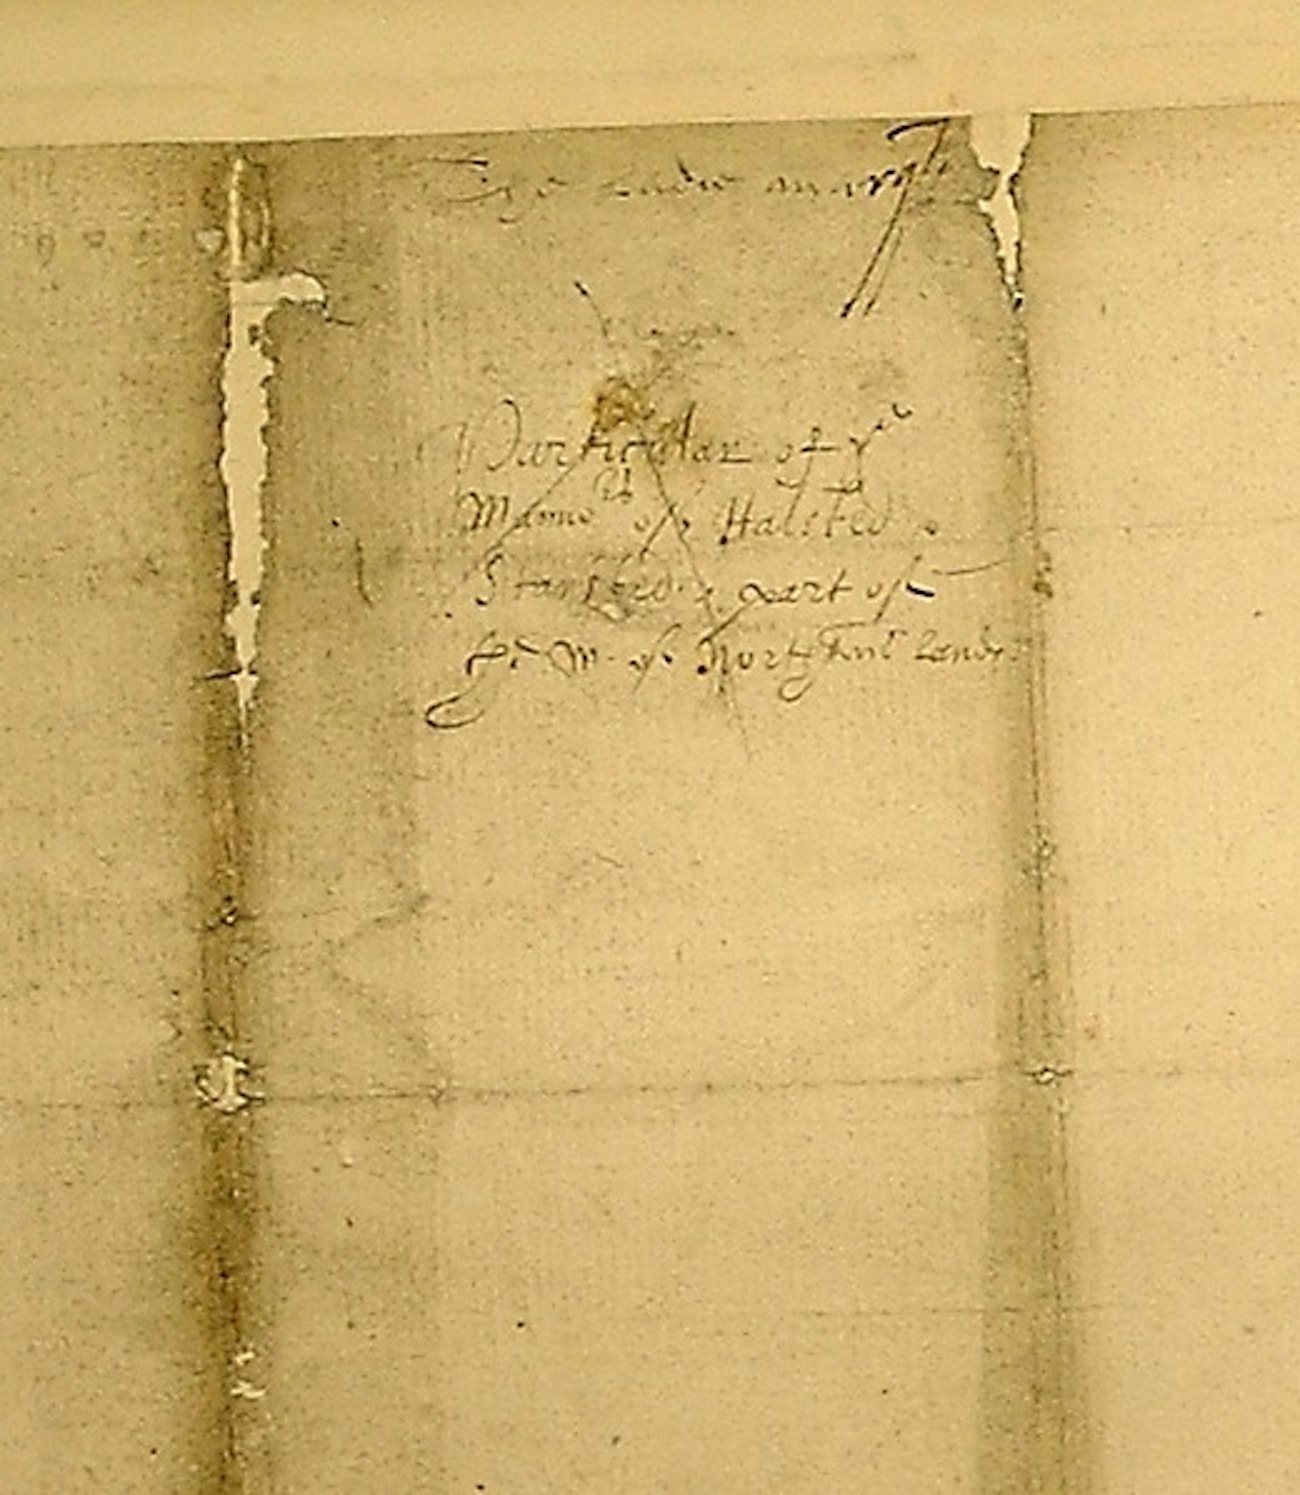 The Ladie
Particular of ye
Mannors of Halsted
Stansted & part of
the M. of North Lands